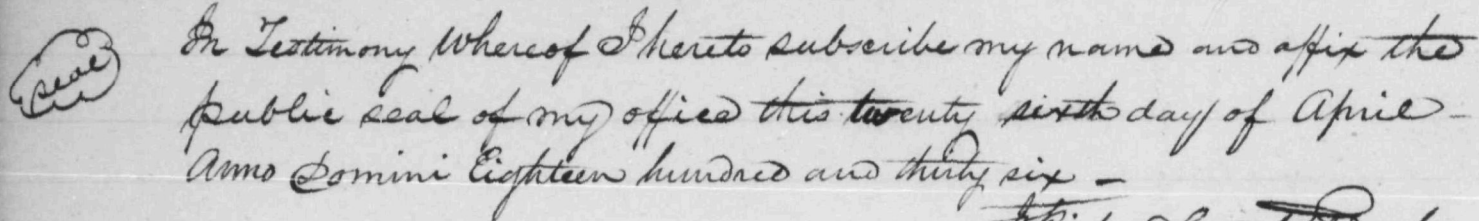 seal
In Testimony Whereof I hereto subscribe my name and affix the
public seal of my office this twenty sixth day of April -
Anno Domini Eighteen hundred and thirty six -